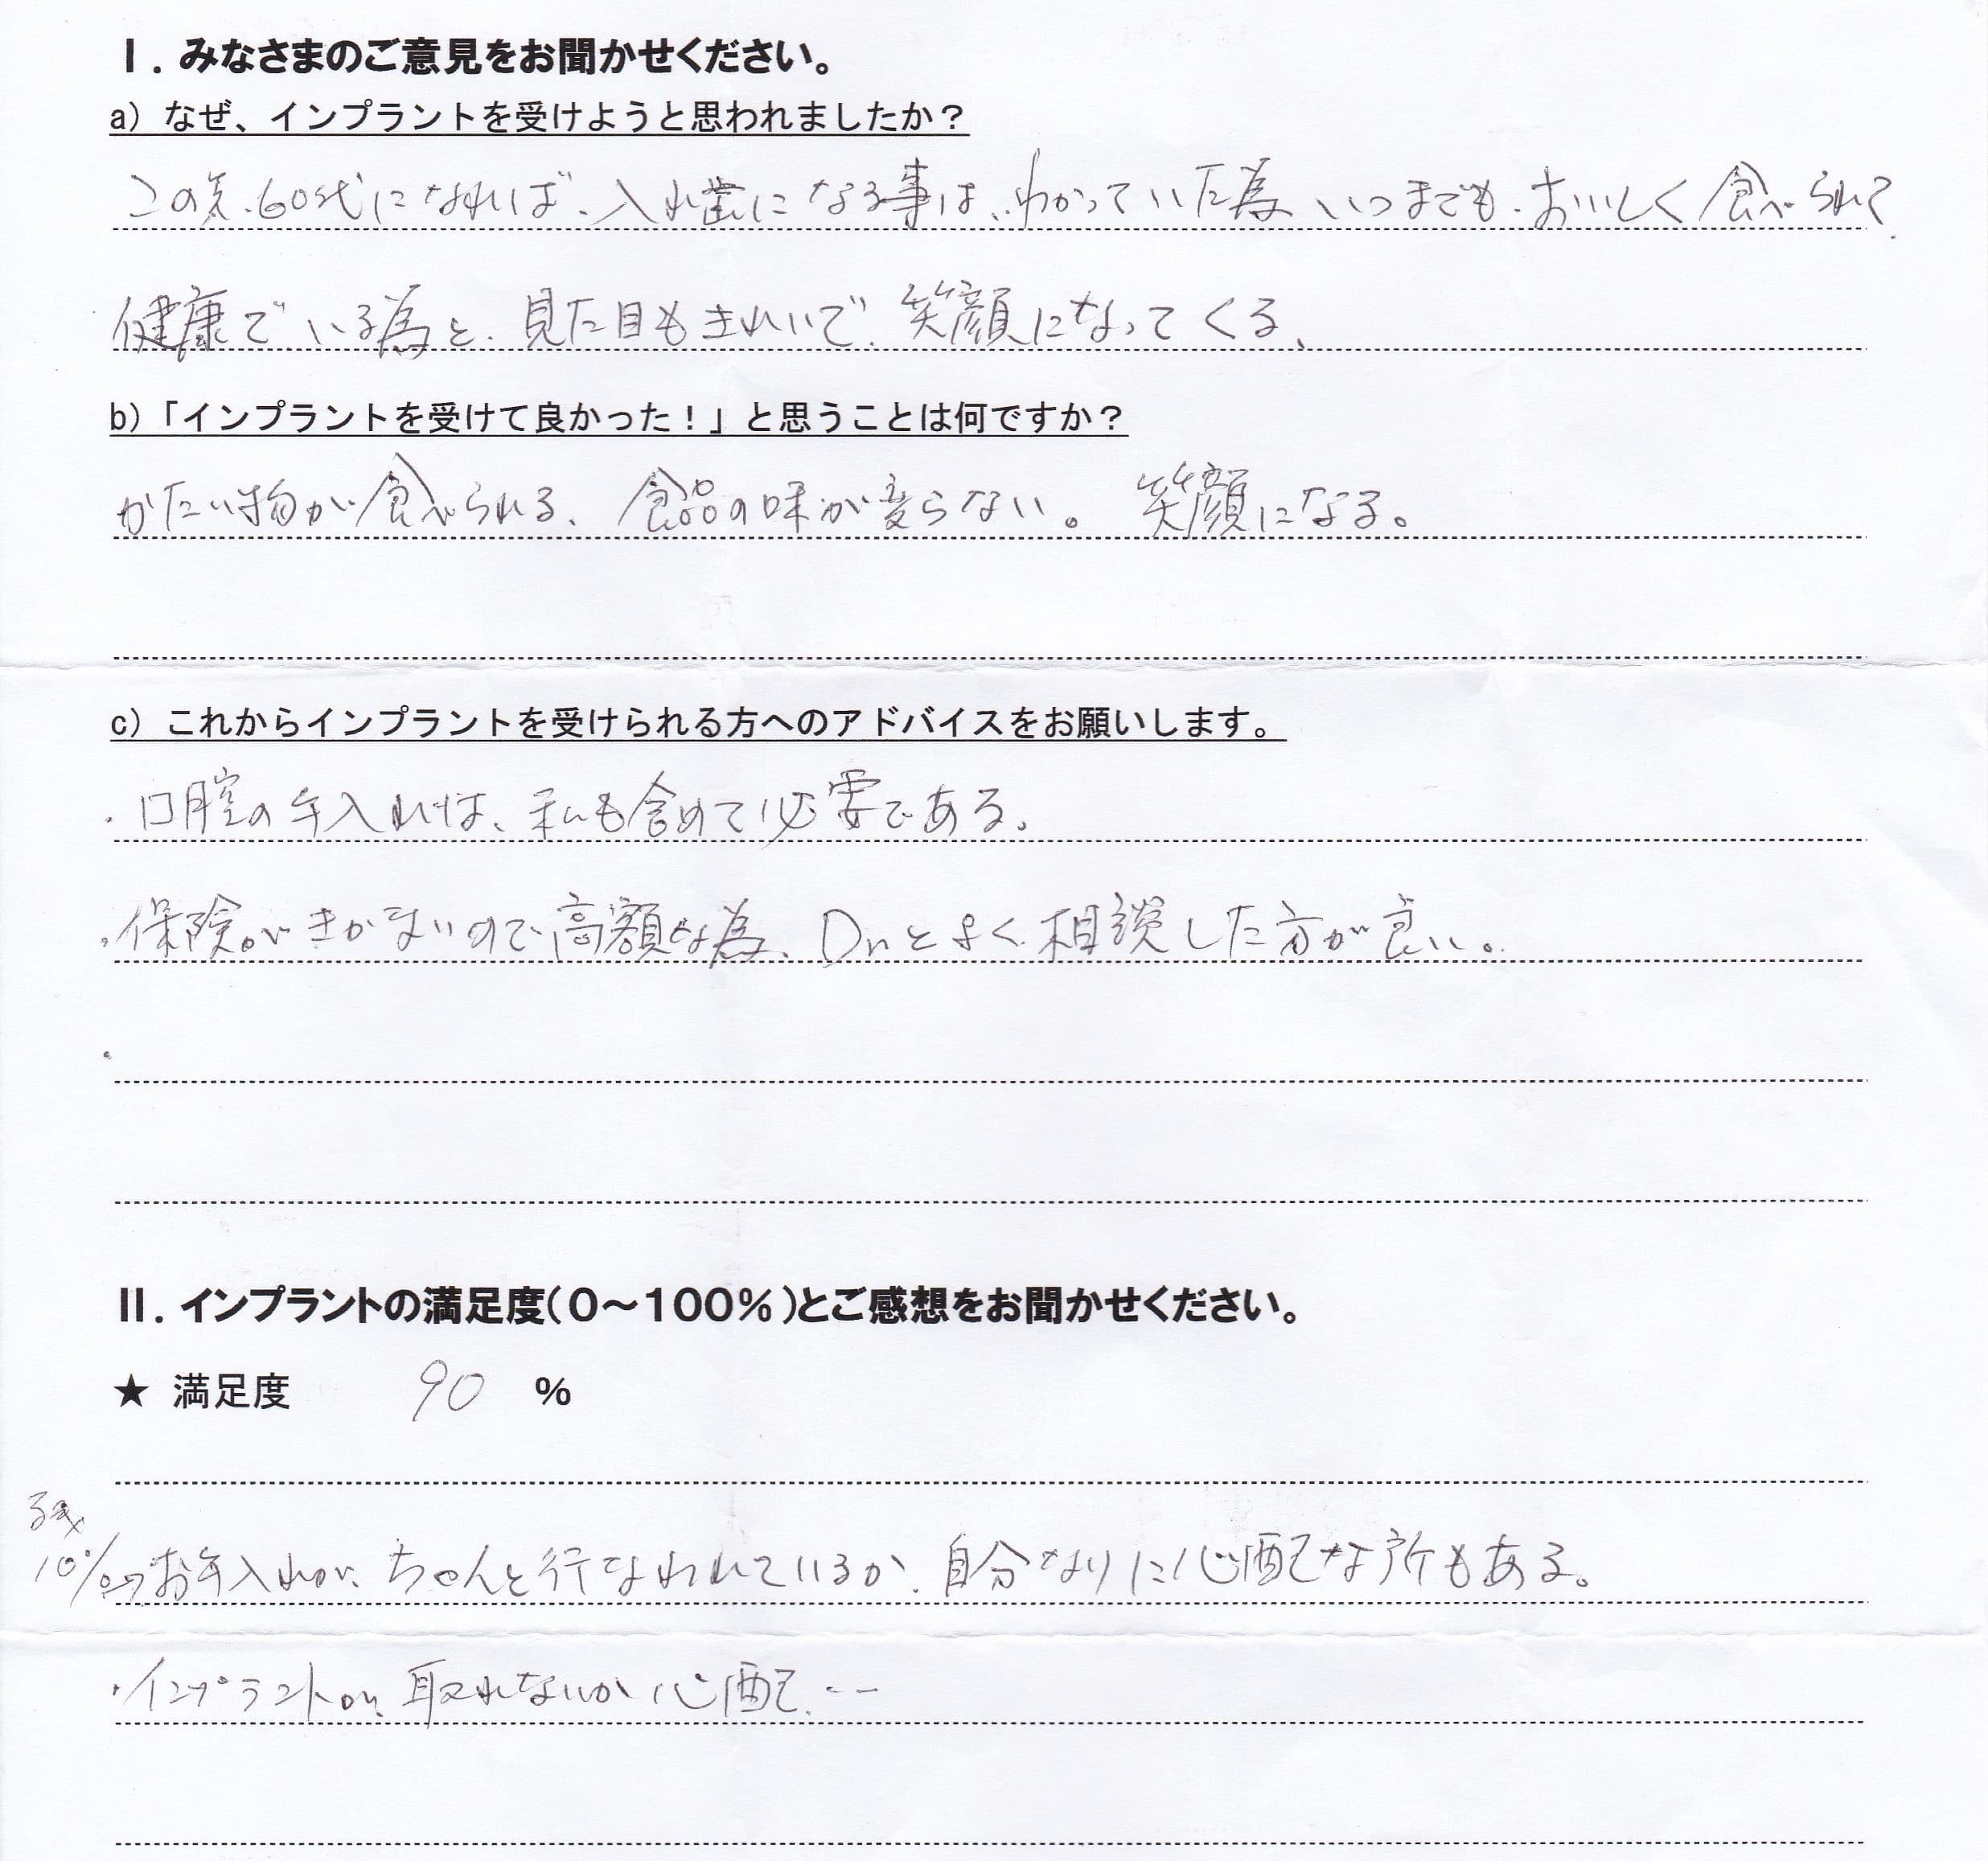 Ⅰ. みなさまのご意見をお聞かせください。
a) なぜ、インプラントを受けようと思われましたか？
この先、60代になれば、入れ歯になる事は、わかっていた為、いつまでも、おいしく食べられて
健康でいる為と、見た目もきれいで、笑顔になってくる、
b)「インプラントを受けて良かった！」と思うことは何ですか？
かたい物が食べられる、食品の味が変らない。 笑顔になる。
c) これからインプラントを受けられる方へのアドバイスをお願いします。
・口腔の手入れは、私も含めて必要である。
・保険がきかないので高額な為、Drとよく相談した方が良い。
・
Ⅱ. インプラントの満足度(0～100%)とご感想をお聞かせください。
★ 満足度 90 %
残
10%→お手入れが、ちゃんと行なわれているか、自分なりに心配な所もある。
・インプラントが、取れないか心配、--